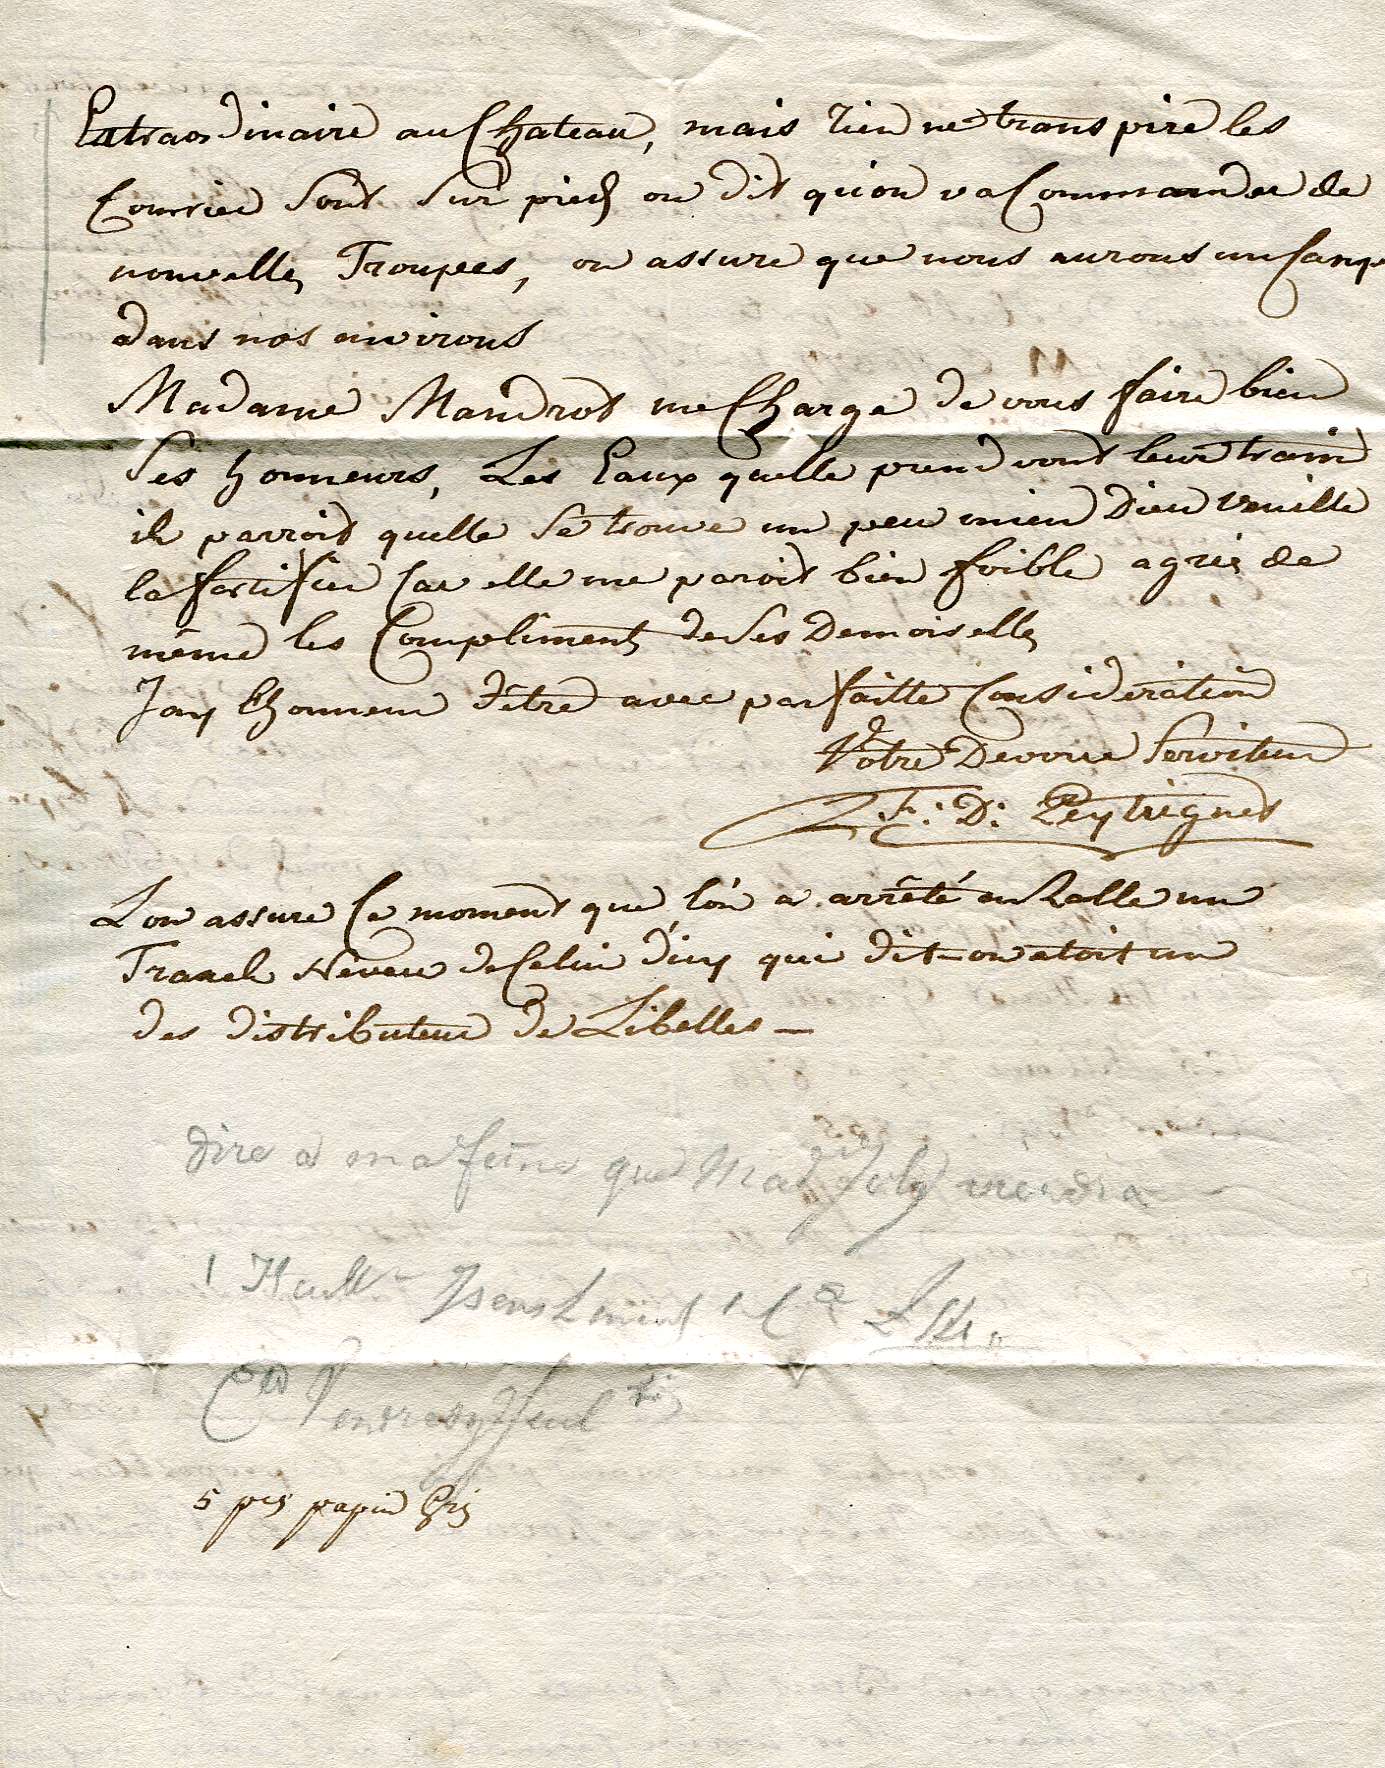 Extraordinaire au Chateau, mais rien ne transpire les
Courrier sont sur pieds on dit qu'on va Commander de
nouvelles Troupes, on assure que nous aurons un Camp
dans nos environs
Madame Mandrot me Charge de vous faire bien
ses honneurs, Les Eaux quelle prend vont leur train
il parroit quelle se trouve un peu mieu Dieu veuille
la fortifier Car elle me paroit bien foible agrées de
même les Compliments de ses Demoiselles
Jay Lhonneur d'être avec parfaitte Consideration
Votre Devoué Serviteur
F: D: Peytregnet
L'on assure Ce moment que l'on a arrêté en Salle un
Neveu de Celui d'icy qui dit-on etoit un
des distributeur de Libelles —
dire à ma feme que Mad Joly viendra
5 pes papier Gris